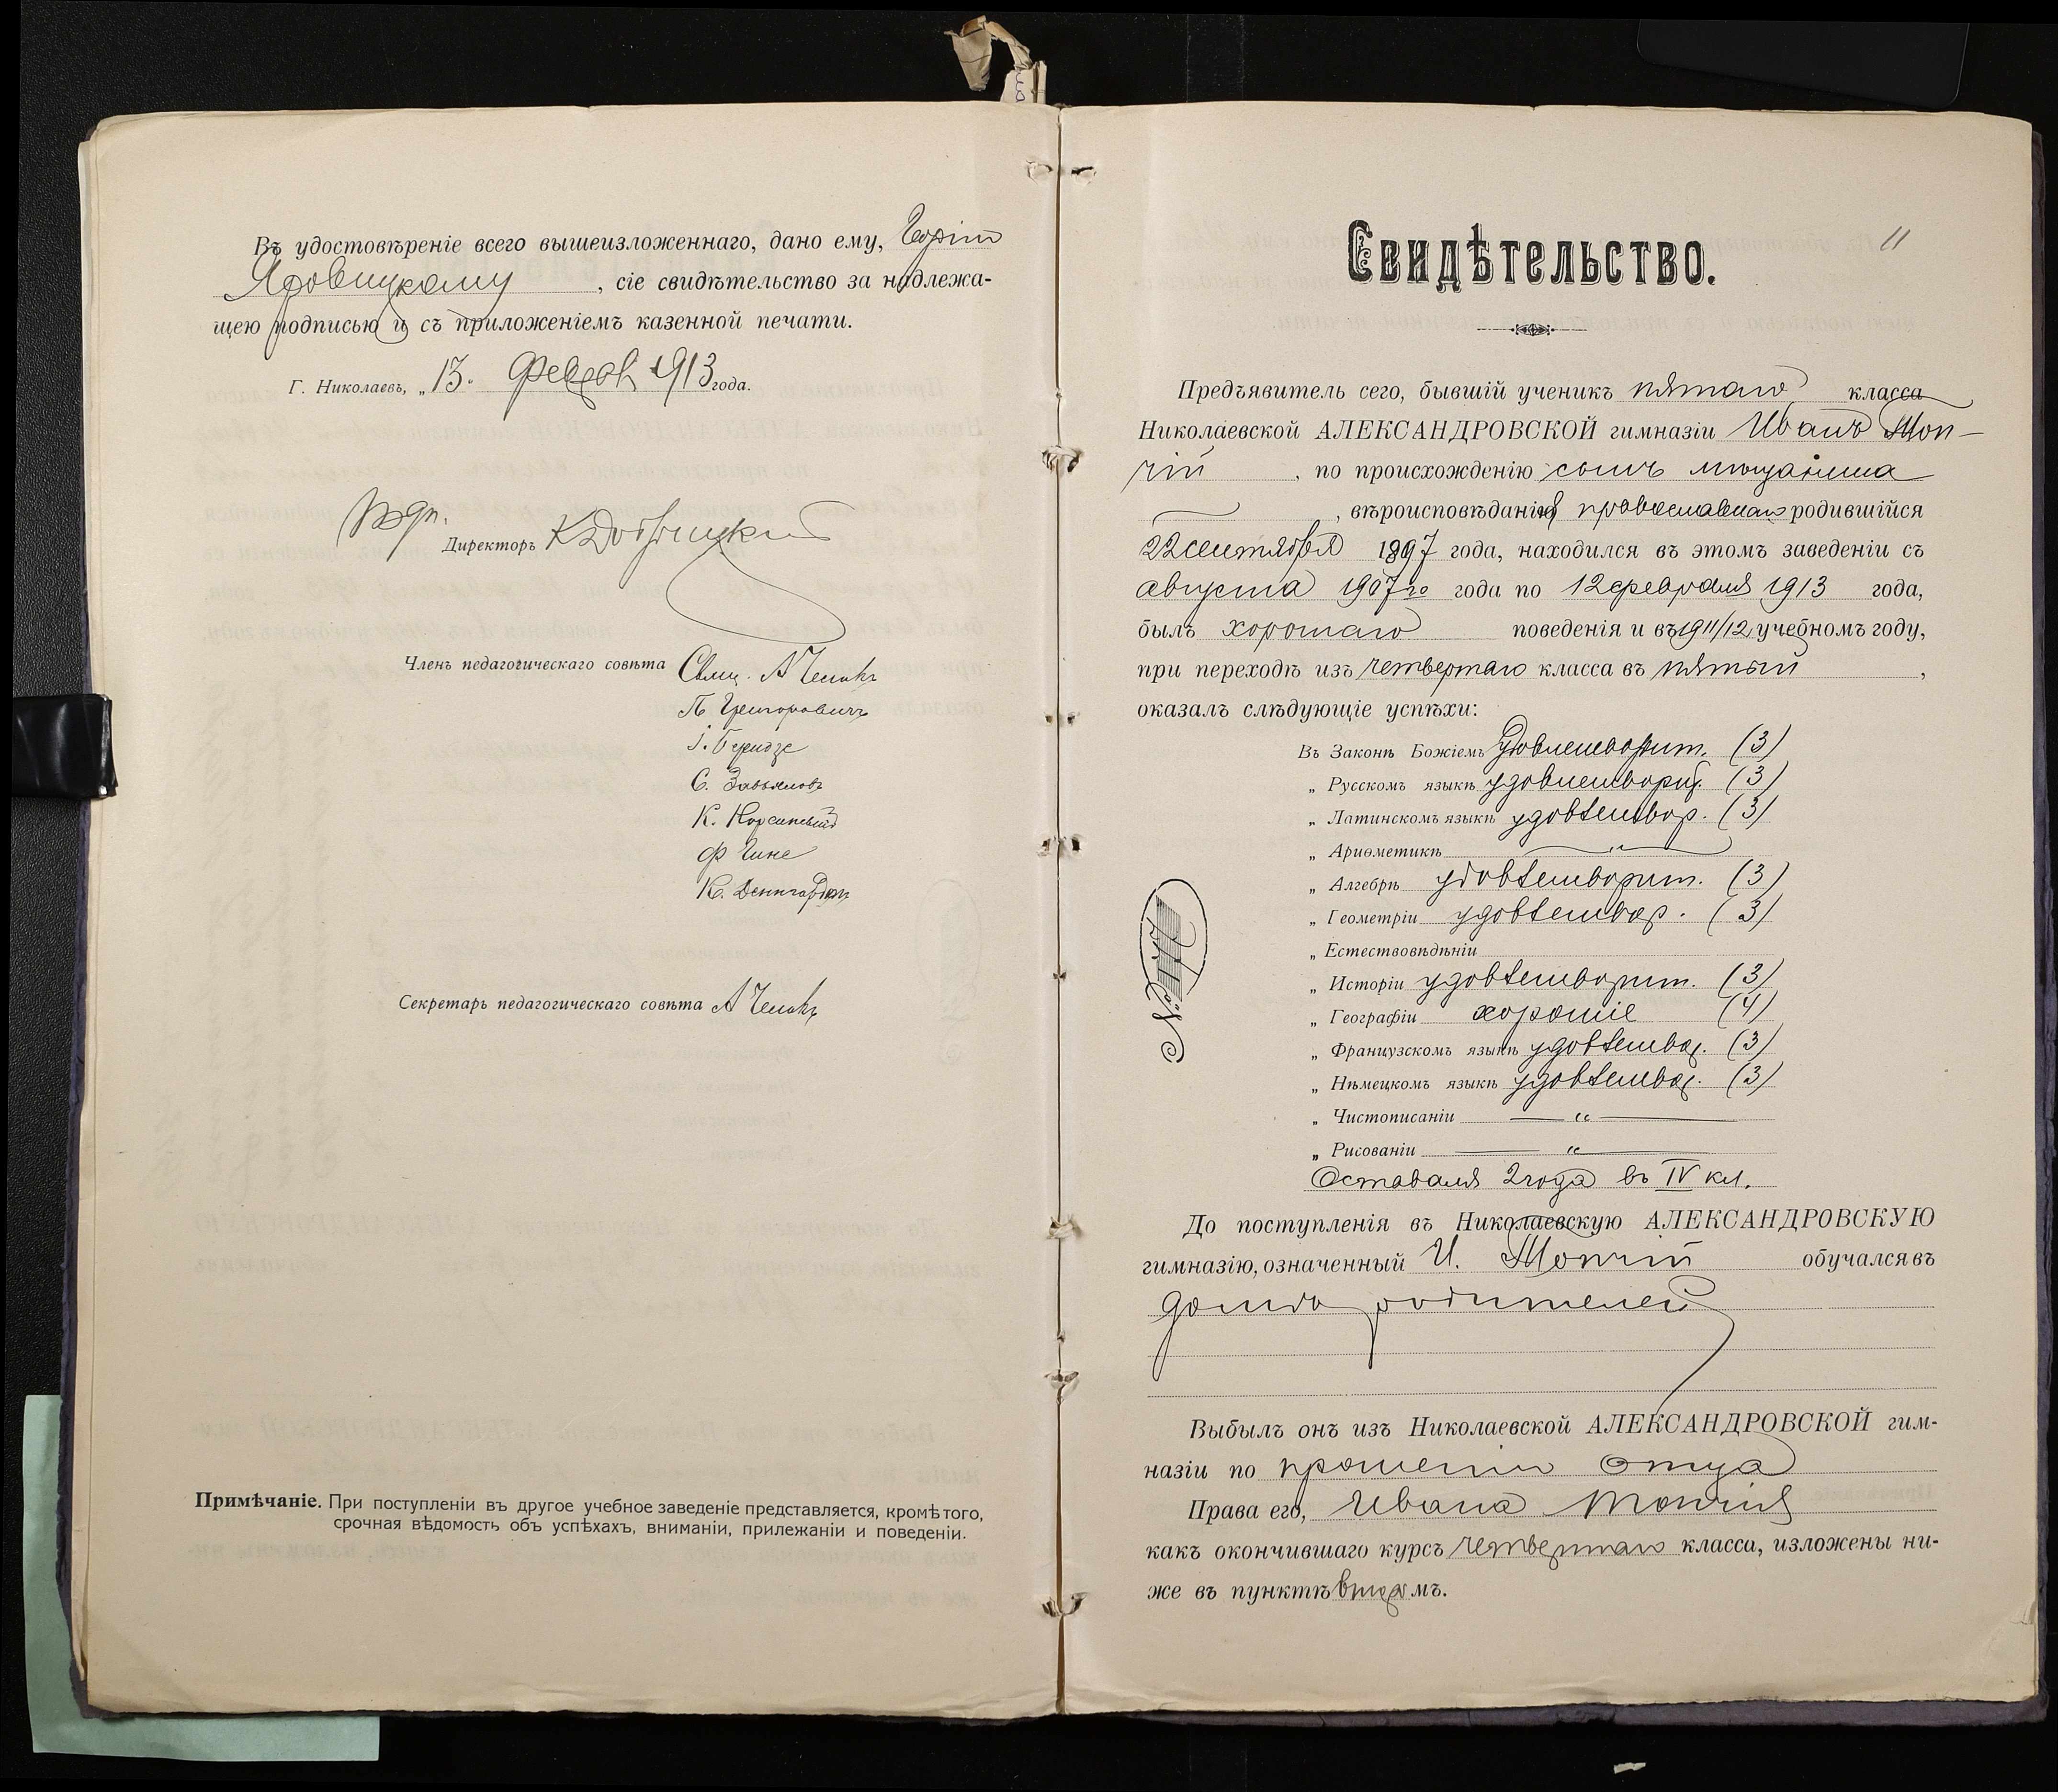 Въ удостовѣреніе всего вышеизложеннаго, дано ему,
Ядовицкому, сіе свидѣтельство за надлежа-
щею подписью и съ приложеніемъ казенной печати.
Г. Николаевъ, „13. Феврал 1913 года.
Директоръ
Членъ педагогическаго совѣта Свящ. А
П Григоровичъ
С. Завьяловъ
К.
Ф Гине
К.
Секретарь педагогическаго совѣта А
Примѣчаніе. При поступленіи въ другое учебное заведеніе представляется, кромѣ того,
срочная вѣдомость объ успѣхахъ, вниманіи, прилежаніи и поведеніи.
11
Свидѣтельство.
Предъявитель сего, бывшій ученикъ пятаго класса
Николаевской АЛЕКСАНДРОВСКОЙ гимназіи Иванъ Топ-
чій, по происхожденію сынъ мѣщанина
, вѣроисповѣданія православнаго родившійся
22 сентября 1897 года, находился въ этомъ заведеніи съ
августа 1907 го года по 12 февраля 1913 года,
былъ хорошаго поведенія и въ 1911/12 учебномъ году,
при переходѣ изъ четвертаго класса въ пятый,
оказалъ слѣдующіе успѣхи:
Въ Законѣ Божіемъ удовлетворит. (3)
„ Русскомъ языкѣ удовлетворит. (3)
„ Латинскомъ языкѣ удовлетвор. (3)
„ Ариѳметикѣ „
„ Алгебрѣ удовлетворит. (3)
„ Геометріи удовлетвор. (3)
„ Естествовѣдѣніи
„ Исторіи удовлетворит. (3)
„ Географіи хорошіе (4)
„ Французскомъ языкѣ удовлетвор. (3)
„ Нѣмецкомъ языкѣ удовлетвор. (3)
„ Чистописаніи — „ —
„ Рисованіи — „ —
Оставался 2 года въ IV кл.
№
До поступленія въ Николаевскую АЛЕКСАНДРОВСКУЮ
гимназію, означенный И. Топчій обучался въ
домѣ родителей
Выбылъ онъ изъ Николаевской АЛЕКСАНДРОВСКОЙ гим-
назіи по прошенію отца
Права его, Ивана Топчія
какъ окончившаго курсъ четвертаго класса, изложены ни-
же въ пунктѣ второмъ.